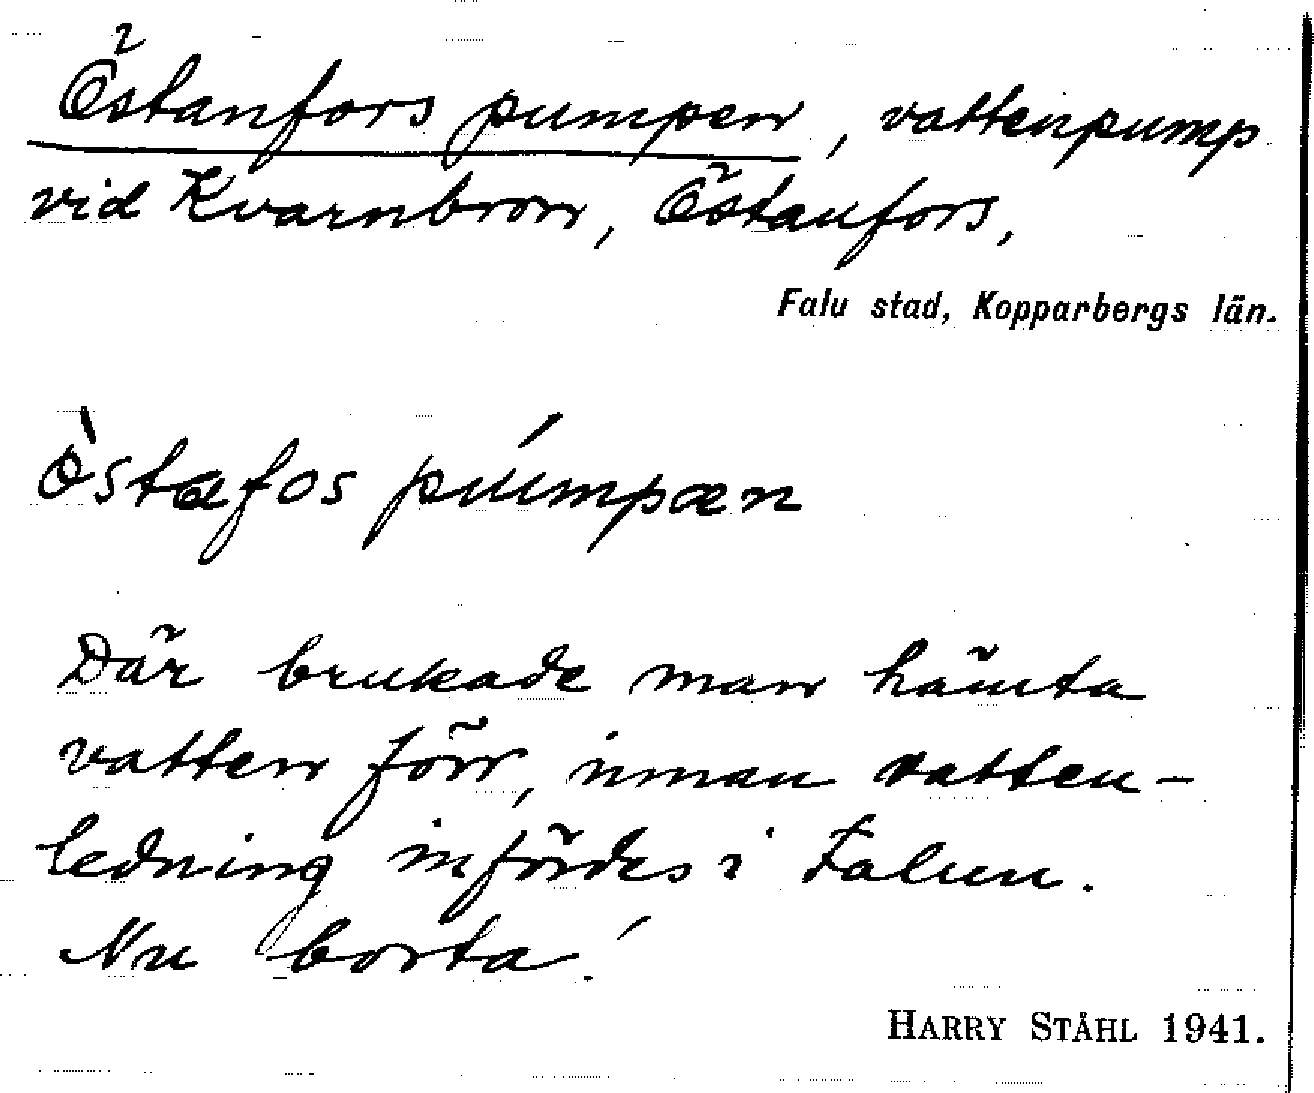 Östanforspumpen, vattenpump
vid Kvarnbron, Östanfors,
Falu stad, Kopparbergs län.
òstafos púmpæn
Där brukade man hämta
vatten förr, innan vatten-
ledning infördes i Falun.
Nu borta!
HARRY STÅHL 1941.